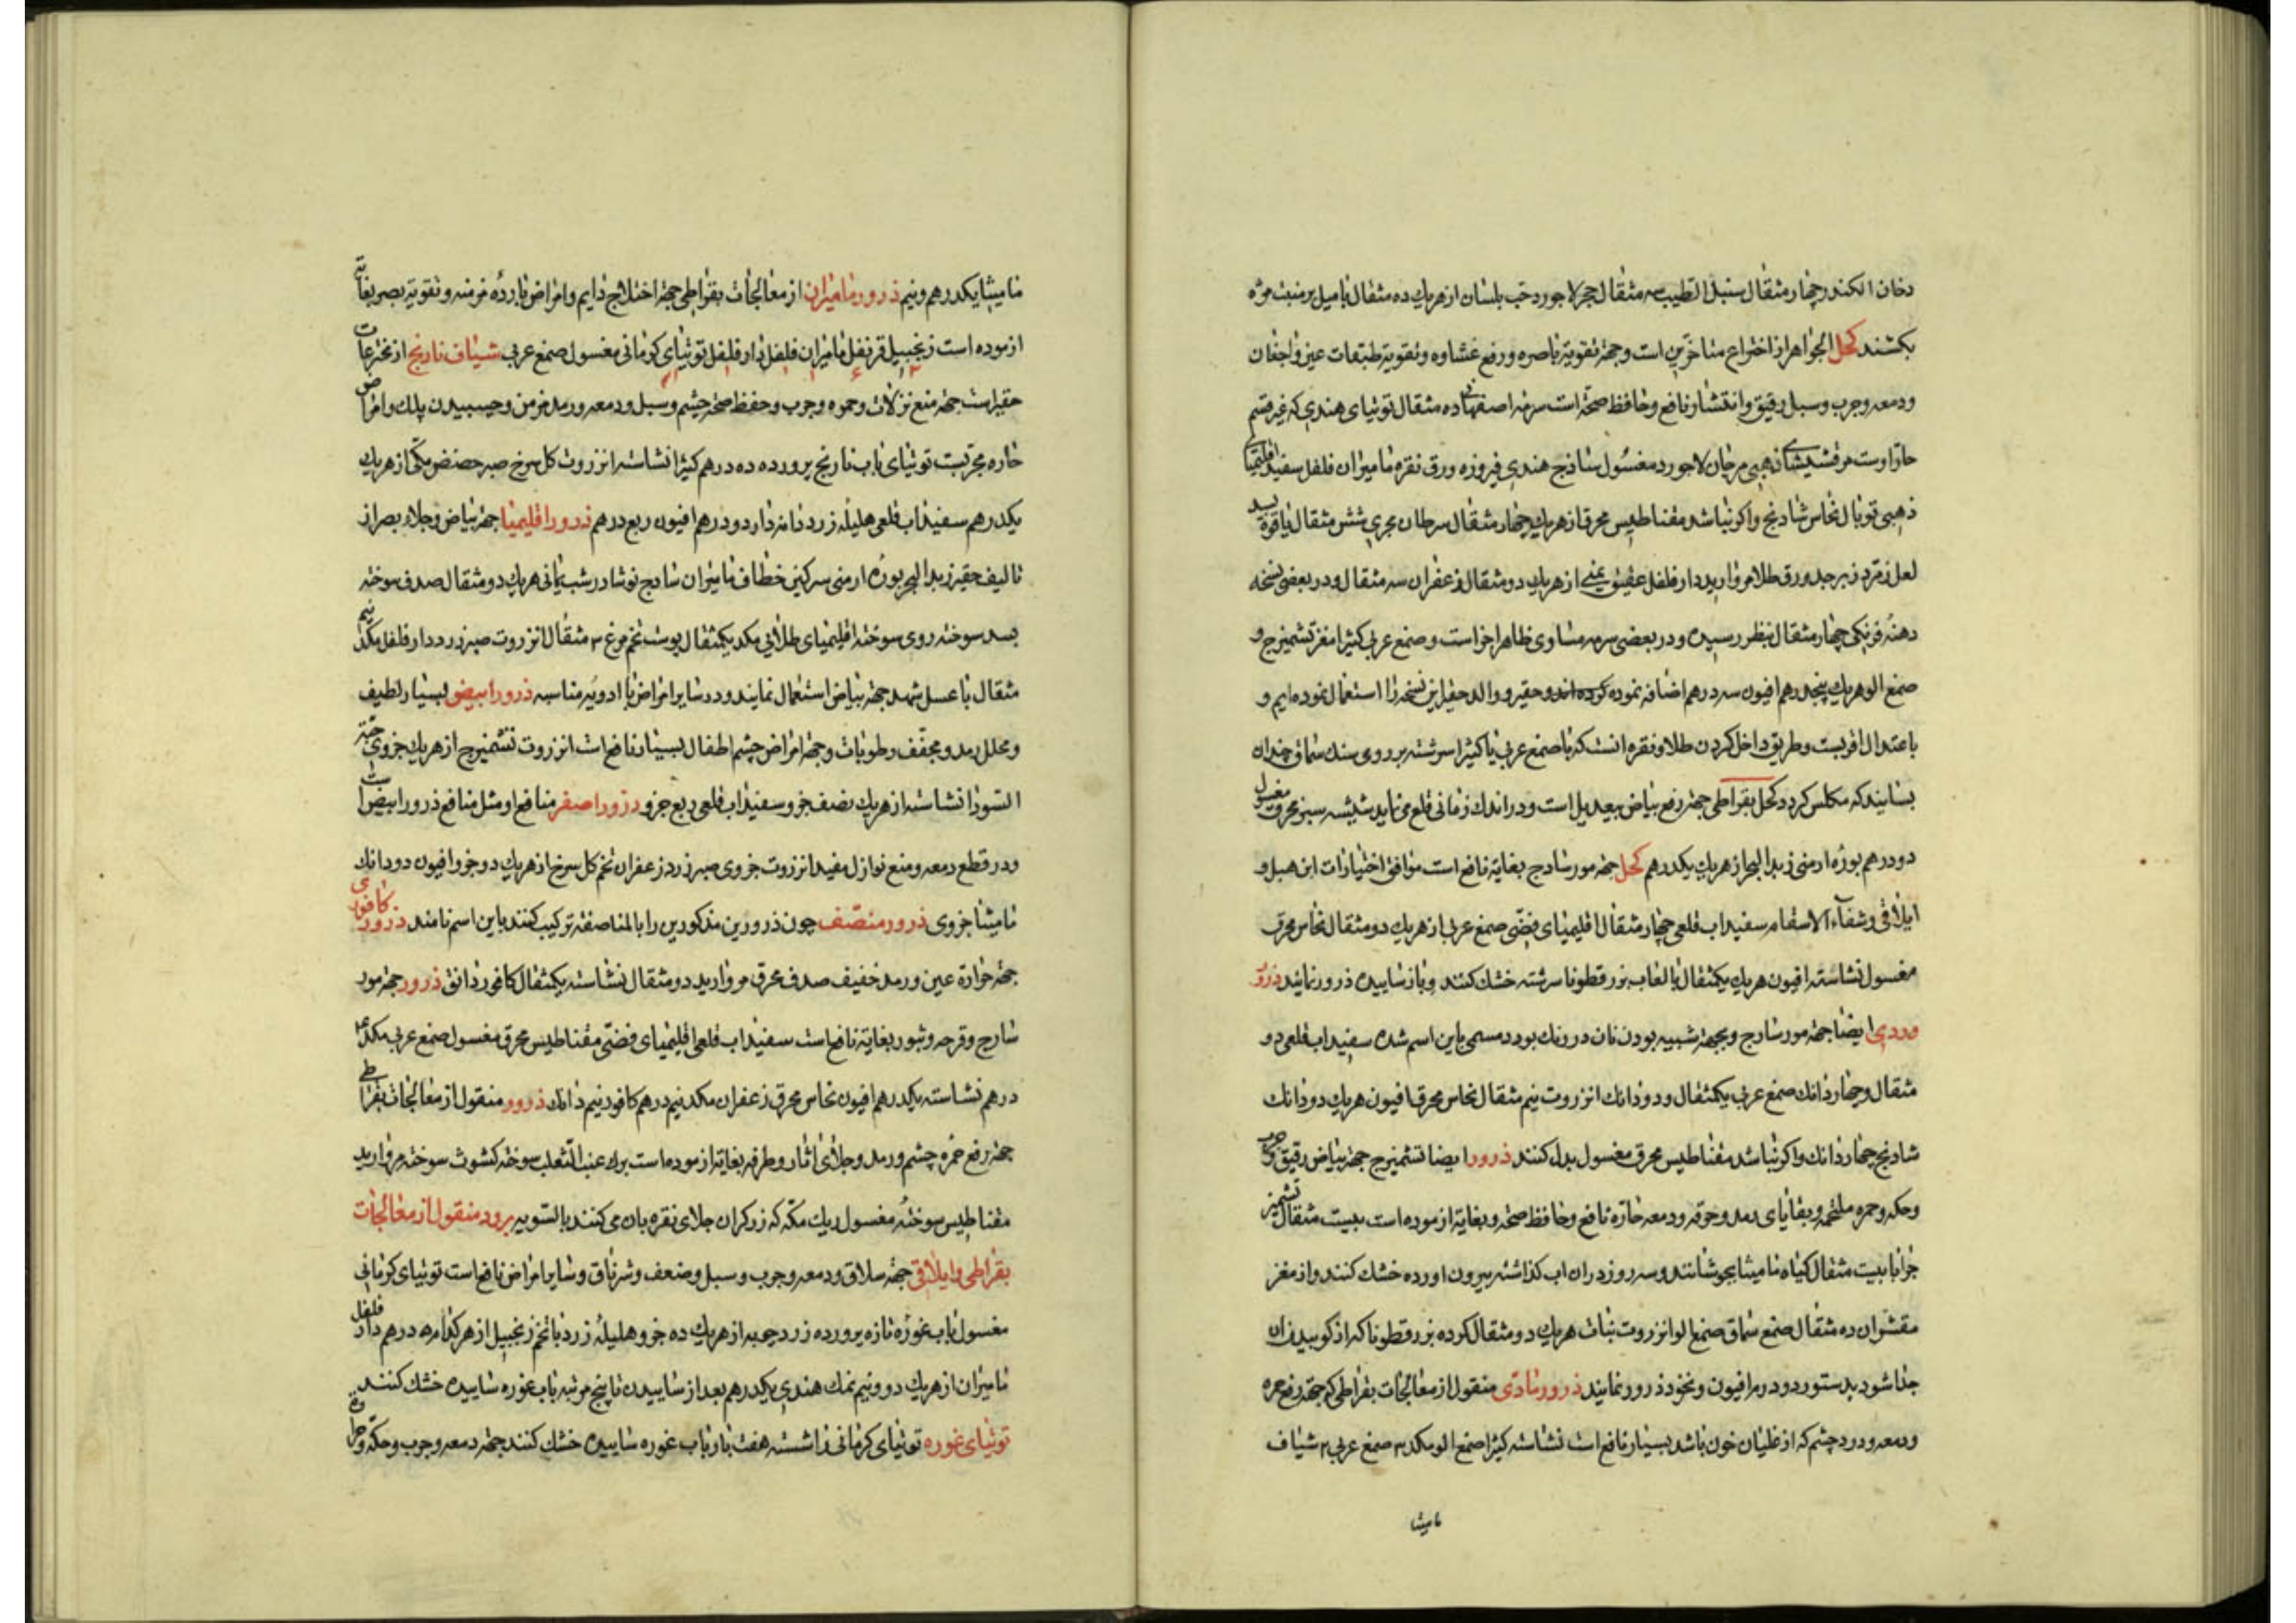 دخان الکندر چهار مثقال سنبل الطیب سه مثقال حجر لاجورد حب بلسان از هریك ده مثقال با میل بر منبت مژه
بکشند کحل الجواهر از اختراع متاخرین است وجهة تقویة باصره ورفع غشاوه وتقویة طبقات عین واجفان
ودمعه وجرب وسبل رقیق وانتشار نافع وحافظ صحة است سرمه اصفهان ده مثقال توتیای هندی که غیر قسم
مرقشیشای ذهبی مرجان لاجورد مغسول ساذج هندی فیروزه ورق نقره مامیران فلفل سفید اقلیمیا
ذهبی توبال نحاس شادنج واکر نباشد مغناطیس محرق از هریك چهار مثقال سرطان بحری شش مثقال یاقوة بسد
لعل زمرد زبرجد ورق طلا مروارید دار فلفل عقیق یمنی از هریك دو مثقال زعفران سه مثقال ودر بعضی نسخه
دهنه فرنکی چهار مثقال بنظر رسیده ودر بعضی سرمه مساوی ظاهر اجزاست وصمغ عربی کثیرا مغز تشمیزج و
صمغ الو هریك پنجدرهم افیون سه درهم اضافه نموده کرده اند وحقیر ووالد حقیر این نسخه را استعمال نموده ایم و
باعتدال اقربست وطریق داخل کردن طلا ونقره انست که با صمغ عربی یا کثیرا سرشته بر روی سنك سماق چندان
بسایند که مکلس کردد کحل بقراطی جهة رفع بیاض بیعدیل است ودر اندك زمانی قلع می نماید شیشه سبز محرق مغسول
دو درهم بوزه ارمنی زبد البحر از هریك یکدرهم کحل جهة مورسارج بغایة نافع است موافق اختیارات ابن هبل و
ایلاقی وشفاء الاسقام سفیداب قلعی چهار مثقال اقلیمیای فضی صمغ عربی از هریك دو مثقال نحاس محرق
مغسول نشاسته افیون هریك یکمثقال با لعاب بزرقطونا سرشته خشك کنند وباز ساییده ذرور نمایند ذرور
وردی ایضا جهة مورسارج وبجهة شبیه بودن نان در رنك بورد مسمی باین اسم شده سفیداب قلعی دو
مثقال وچهار دانك صمغ عربی یکمثقال ودو دانك انزروت نیم مثقال نحاس محرق افیون هریك دو دانك
شادنج چهار دانك واکر نباشد مغناطیس محرق مغسول بدل کنند ذرور ایضا تشمیزج جهة بیاض رقیق وجرب
وحکه وحمره ملتحمه وبقایای رمد وحرقه ودمعه حاره نافع وحافظ صحة وبغایة ازموده است بیست مثقال تشمیزج
را با بیست مثقال کیاه مامیثا بجوشانند وسه روز در ان اب کذاشته بیرون اورده خشك کنند واز مغز
مقشر ان ده مثقال صمغ سماق صمغ الو انزروت نبات هریك دو مثقال کرده بزرقطونا که از کوبیدن ان
جدا شود بدستور دو درم افیون ونخود ذرور نمایند ذرور مادی منقول از معالجات بقراطی که جهة رفع حمره
ودمعه ودرد چشم که از غلیان خون باشد بسیار نافع است نشاسته کثیرا صمغ الو مکد ٣ صمغ عربی ٢ شیاف
مامیثا
مامیثا یکدرهم ونیم ذرور مامیران از معالجات بقراطی جهة اختلاج دایم وامراض بارده مزمنه وتقویة بصر بغایة
ازموده است زنجبیل قرنفل مامیران فلفل دار فلفل توتیای کرمانی مغسول صمغ عربی شیاف نارنج از مخترعات
حقیر است جهة منع نزلات وحمره وجرب وحفظ صحة چشم وسبل ودمعه ورمد مزمن وچسبیدن پلك وامراض
حاره مجربست توتیای باب نارنج پرورده ده درهم کثیرا نشاسته انزروت کل سرخ صبر حضض مکی از هریك
یکدرهم سفیداب قلعی هلیله زرد مامیران دو درهم افیون ربع درهم ذرور اقلیمیا جهة بیاض وجلاء بصر از
تالیف حقیر زبد البحر بوزه ارمنی سرکین خطاف مامیران ساذج نوشادر شب یمانی هریك دو مثقال صدف سوخته
بسد سوخته روی سوخته اقلیمیای طلائی مکد یکمثقال پوست تخم مرغ ٣ مثقال انزروت صبر زرد دار فلفل مکد نیم
مثقال با عسل شهد جهة بیاض استعمال نمایند ودر سایر امراض با ادویه مناسبه ذرور ابیض بسیار لطیف
ومحلل رمد ومجفف رطوبات وجهة امراض چشم اطفال بسیار نافع است انزروت تشمیزج از هریك جزوی حبة
السودا نشاسته از هریك نصف جزو سفیداب قلعی ربع جزو ذرور اصفر منافع او مثل منافع ذرور ابیض است
ودر قطع دمعه ومنع نوازل مفید انزروت جزوی صبر زرد زعفران تخم کل سرخ از هریك دو جزو افیون دو دانك
مامیثا جزوی ذرور منصف چون ذرورین مذکورین را بالمناصفه ترکیب کنند باین اسم نامند ذرور کافوری
جهة حرارة عین ورمد خفیف صدف محرق مروارید دو مثقال نشاسته یکمثقال کافور دانق ذرور جهة مور
سارج وقرحه وبثور بغایة نافع است سفیداب قلعی اقلیمیای فضی مغناطیس محرق مغسول صمغ عربی مکد ٤
درهم نشاسته یکدرهم افیون نحاس محرق زعفران مکد نیم درهم کافور نیم دانك ذرور منقول از معالجات بقراطی
جهة رفع حمره چشم ورمد وجلای اثار وطرفه بغایة ازموده است برك عنب الثعلب سوخته کشوث سوخته مروارید
مغناطیس سوخته مغسول ریك مکه که زرکران جلای نقره بان می کنند بالسویه برود منقول از معالجات
بقراطی وایلاقی جهة سلاق ودمعه وجرب وسبل وضعف وشرناق وسایر امراض نافع است توتیای کرمانی
مغسول باب غوره تازه پرورده زردچوبه از هریك ده جزو هلیله زرد با تخم زنجبیل از هر کدام ٥ درهم دار فلفل
مامیران از هریك دو ونیم نمك هندی یکدرهم بعد از ساییدن تا پنج مرتبه باب غوره ساییده خشك کنند
توتیای غوره توتیای کرمانی را شسته هفت بار باب غوره ساییده خشك کنند جهة دمعه وجرب وحکه